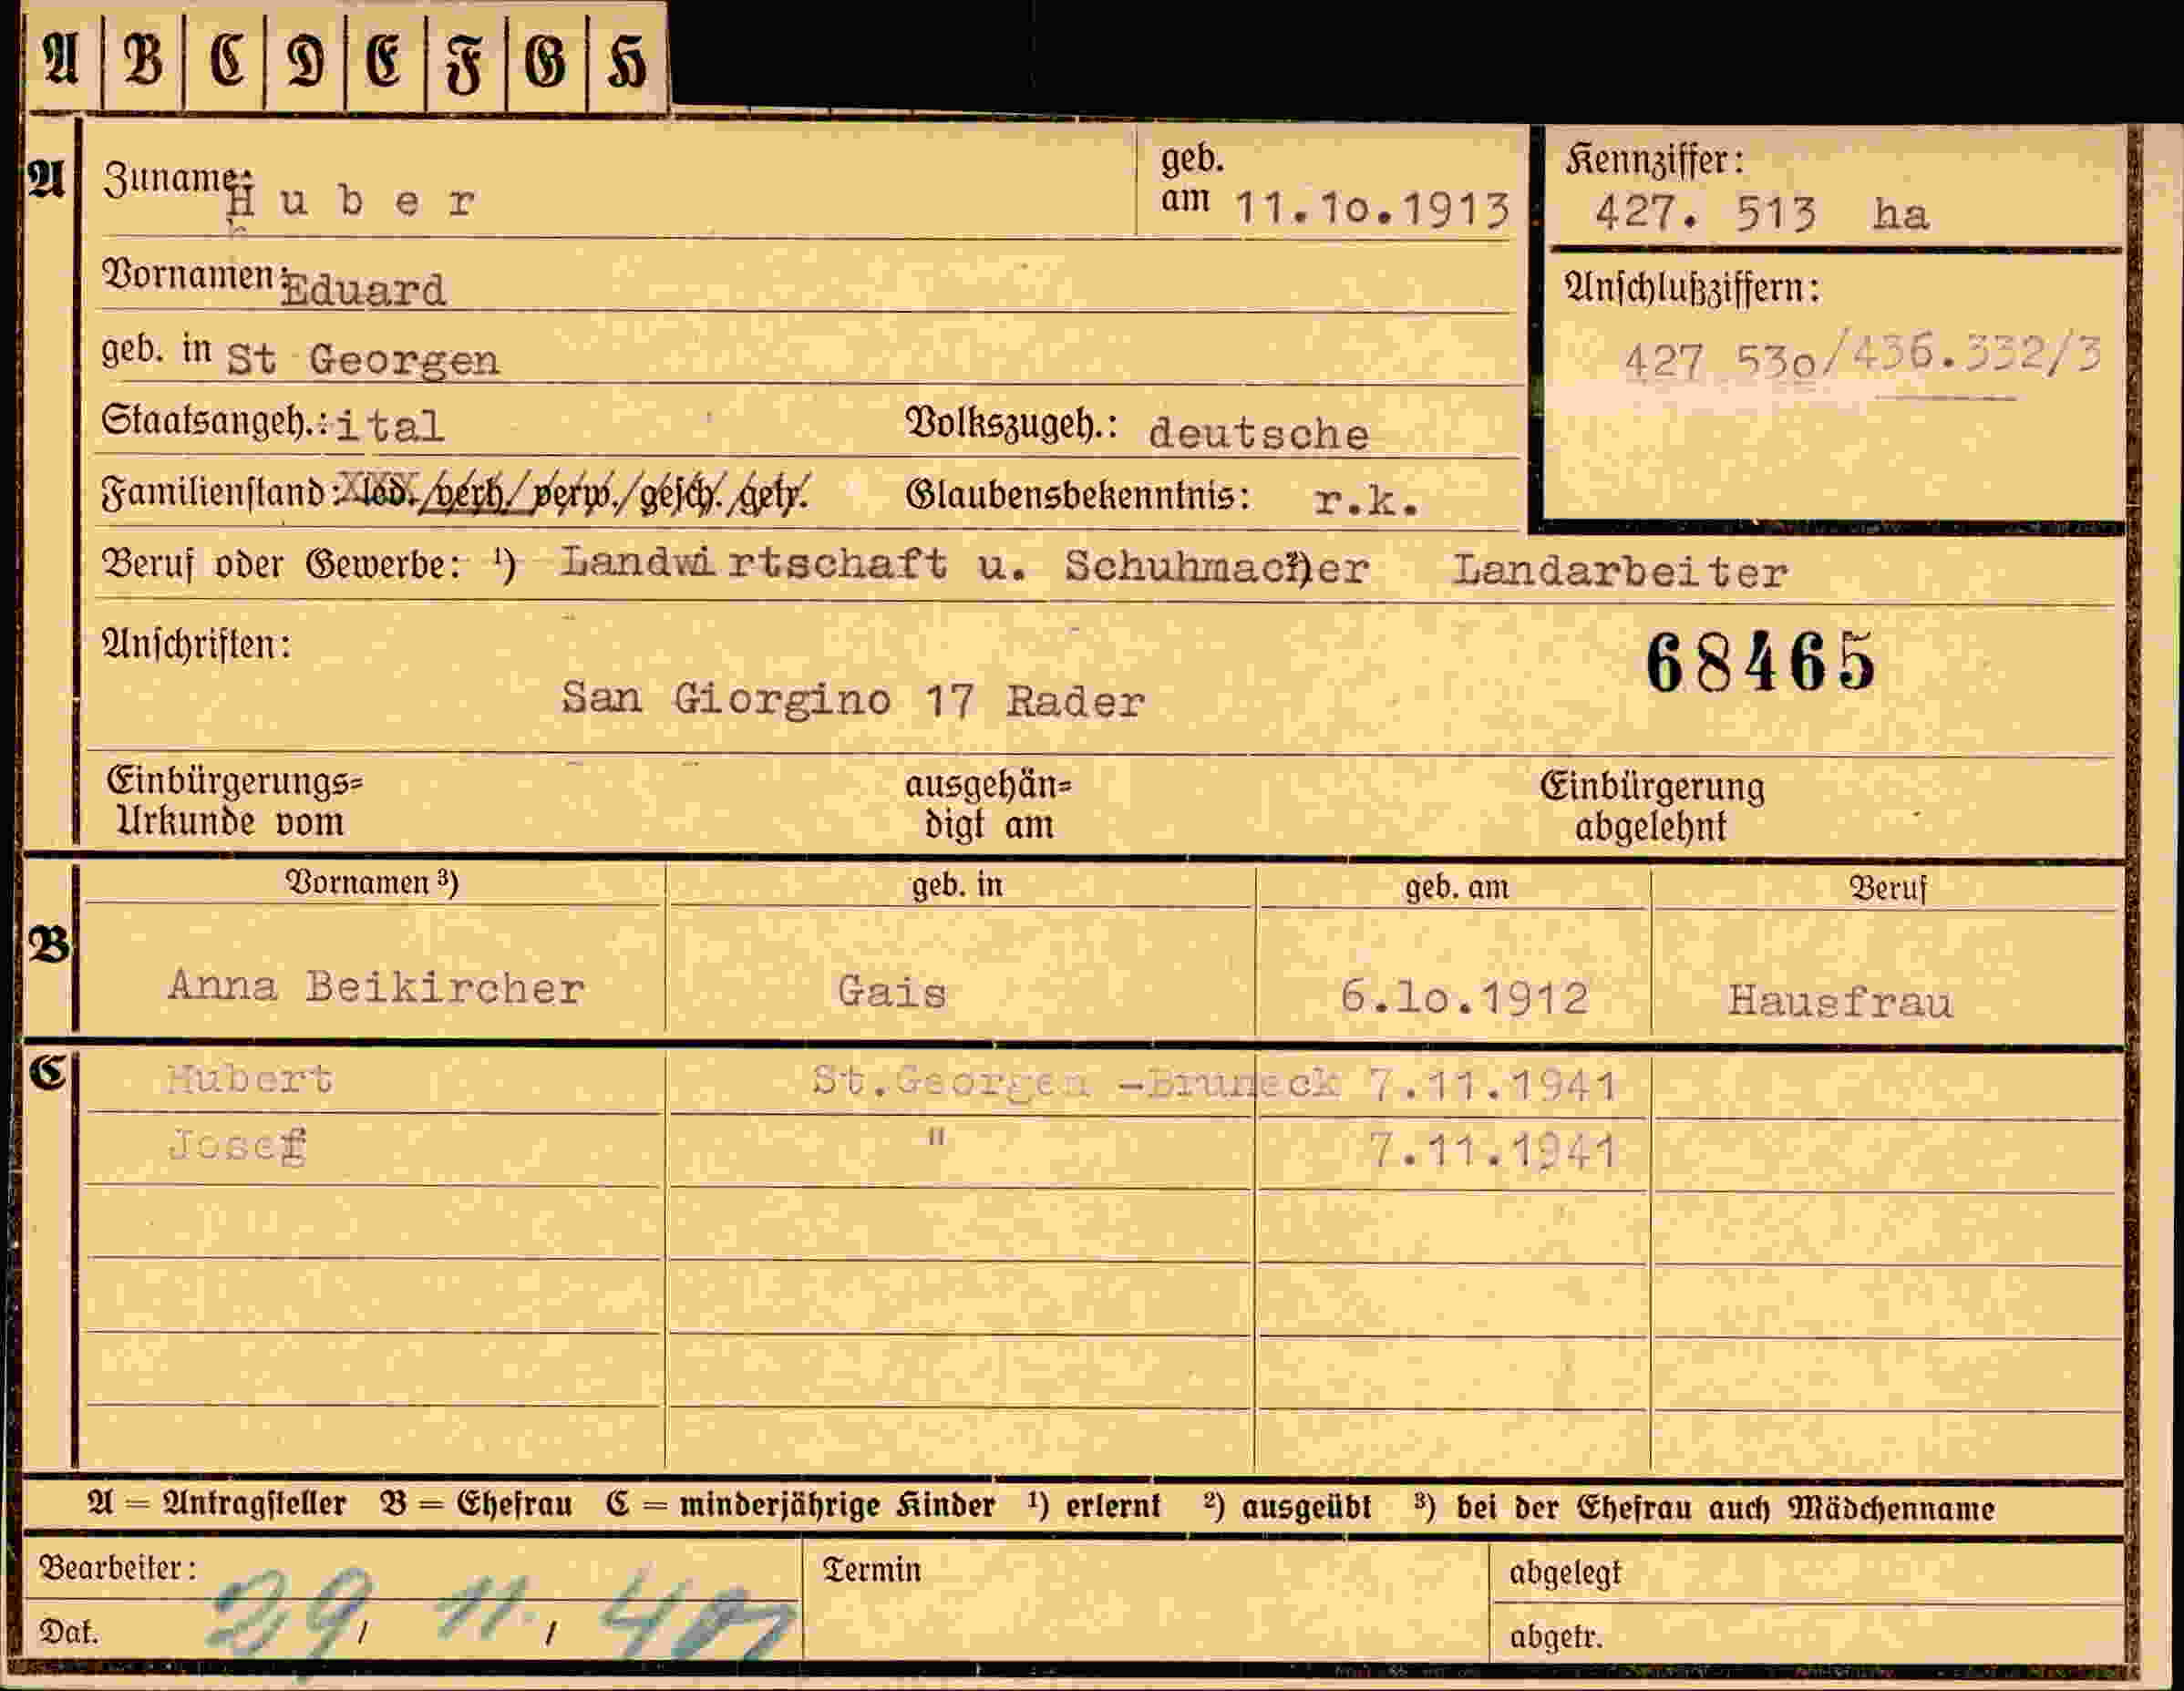 A B C D E F G H
A
Zuname: Huber
geb. am 11.10.1913
Kennziffer:
427. 513 ha
Vornamen: Eduard
Anschlußziffern:
427 530/436.332/3
geb. in St Georgen
Staatsangeh.: ital Volkszugeh.: deutsche
Familienstand: led./verh./verw./gesch./getr. Glaubensbekenntnis: r.k.
Beruf oder Gewerbe: ¹) Landwirtschaft u. Schuhmacher ²) Landarbeiter
Anschriften:
68465
San Giorgino 17 Rader
Einbürgerungs=
Urkunde vom
ausgehän=
digt am
Einbürgerung
abgelehnt
B
Vornamen ³) geb. in geb. am Beruf
Anna Beikircher Gais 6.10.1912 Hausfrau
C
Hubert St.Georgen -Bruneck 7.11.1941
Josef " 7.11.1941
A = Antragsteller B = Ehefrau C = minderjährige Kinder ¹) erlernt ²) ausgeübt ³) bei der Ehefrau auch Mädchenname
Bearbeiter: Termin abgelegt
Dat. 29/ 11. / 40 abgetr.